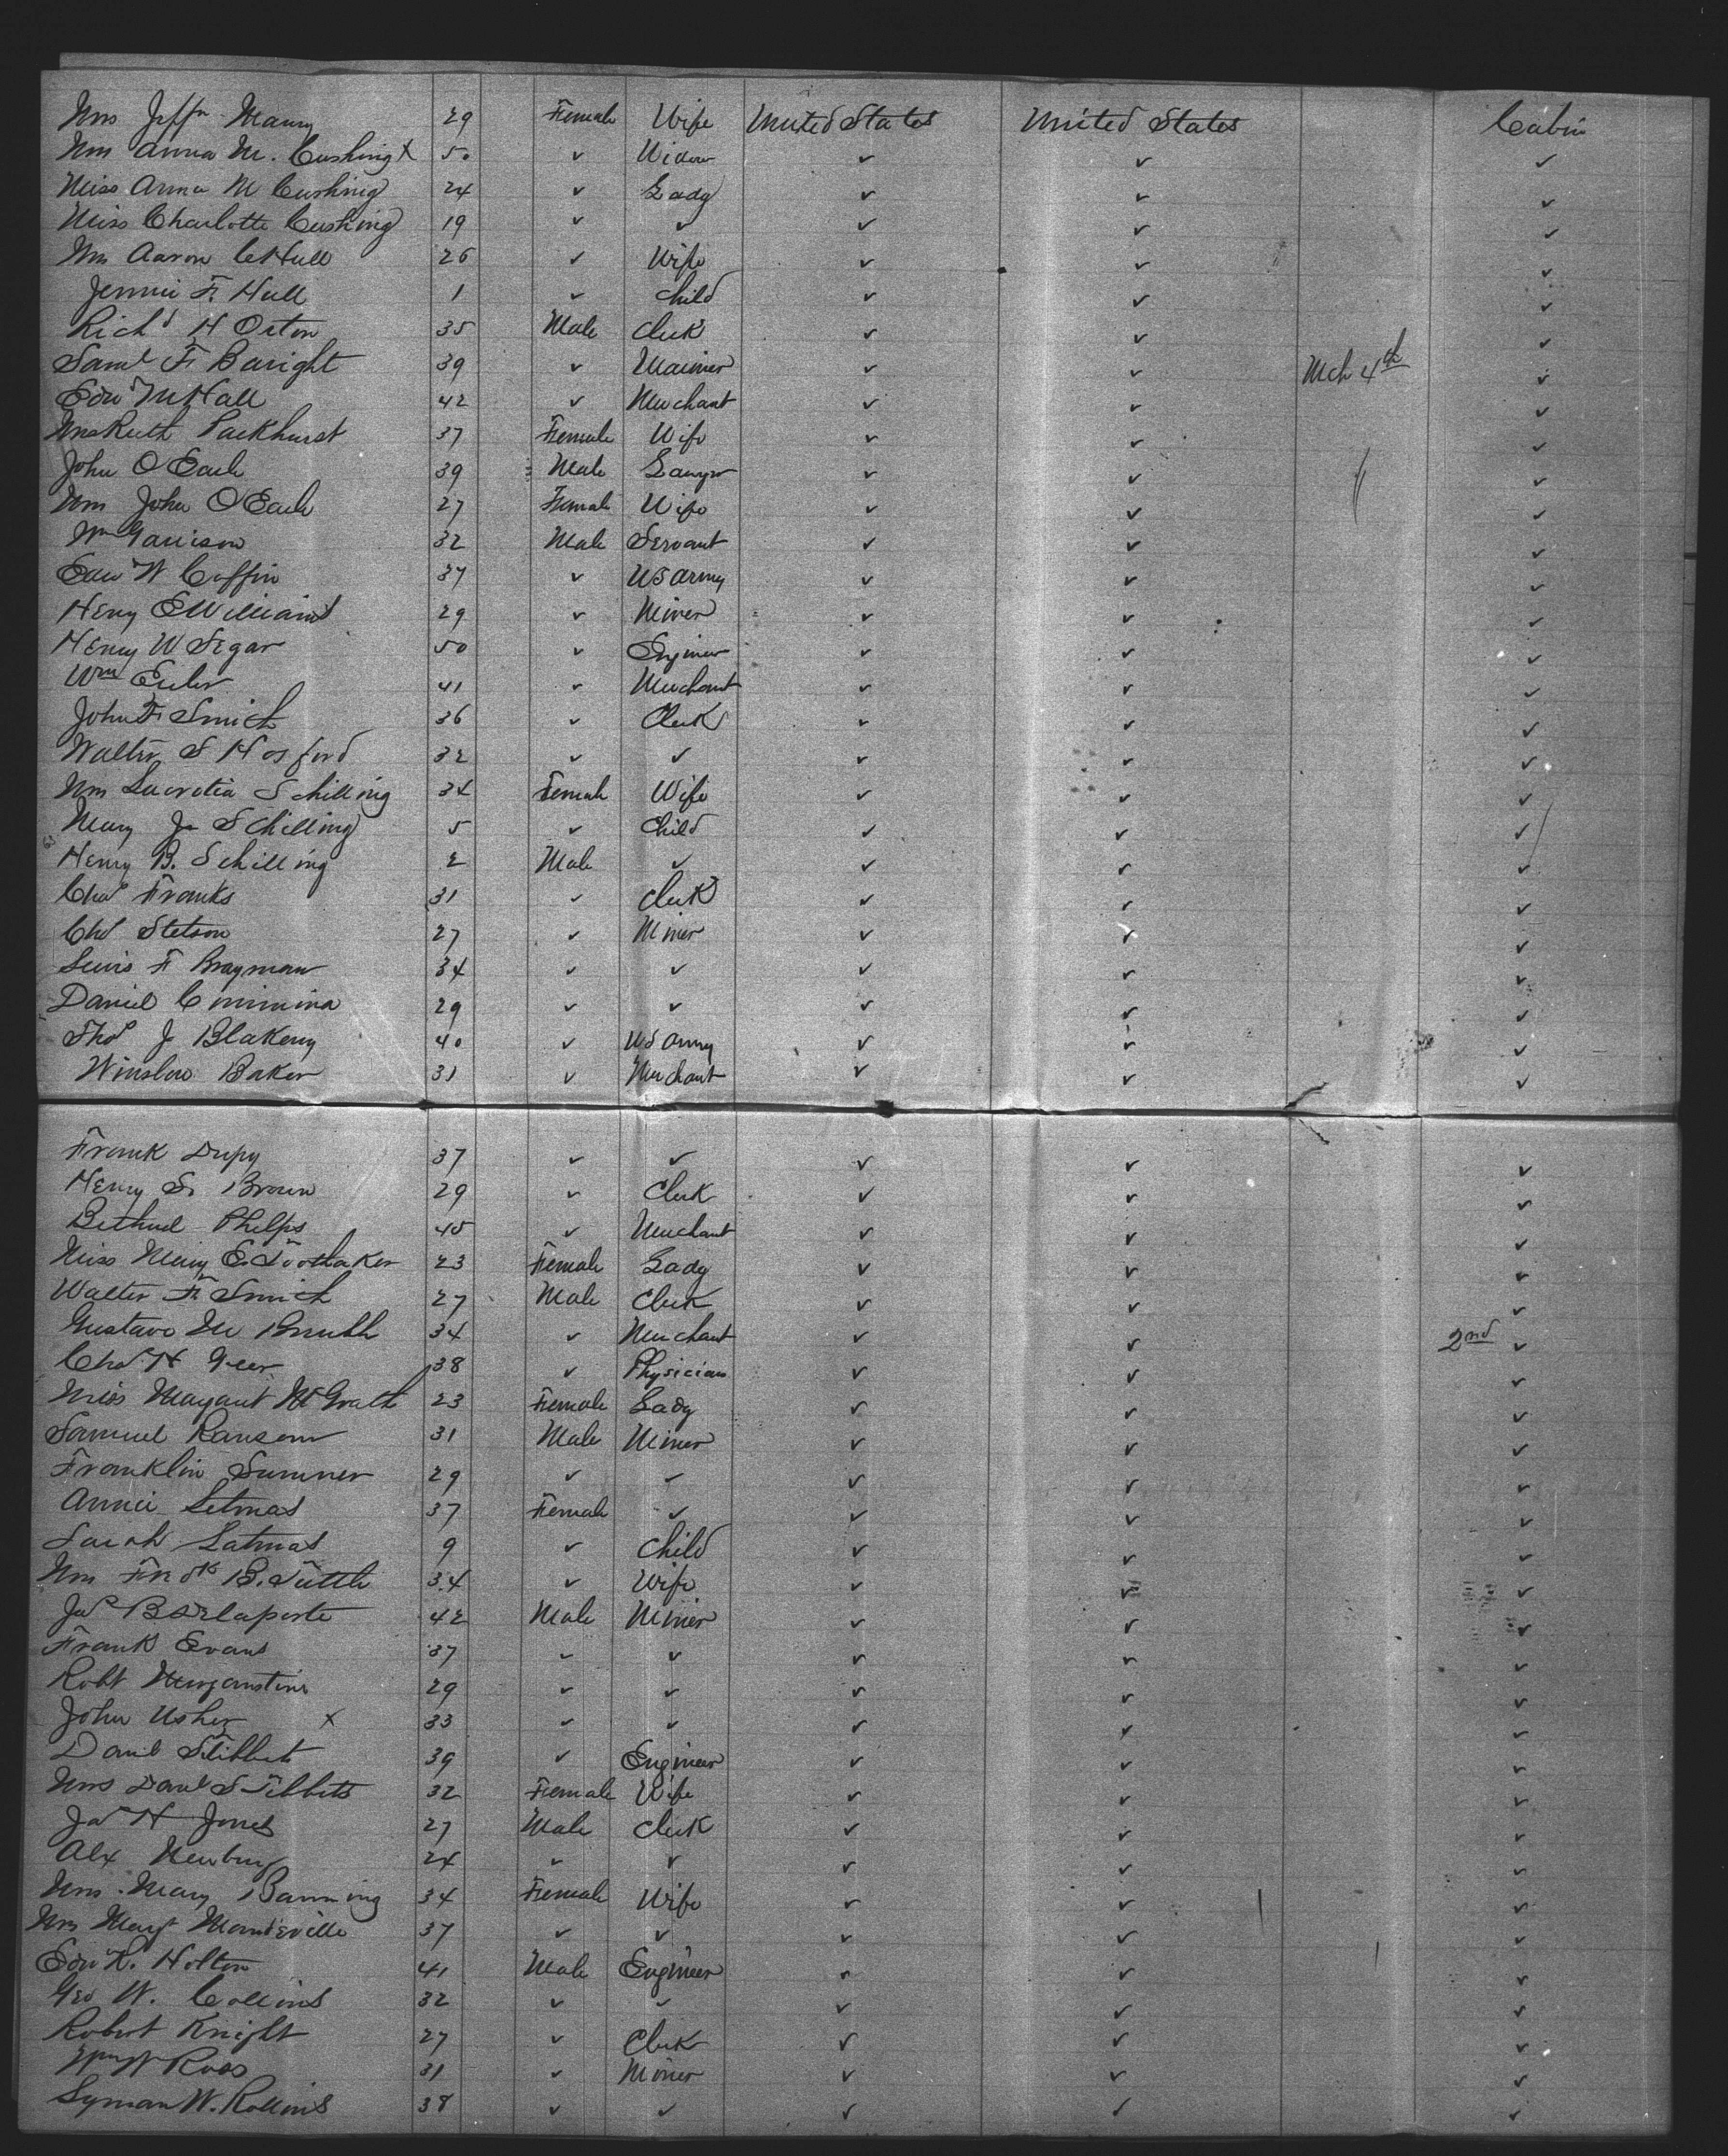 Mrs Jeffn Maury 29 Female Wife United States United States Cabin
Mrs Anna M. Cushing x 50 ✓ Widow ✓ ✓ ✓
Miss Anna M Cushing 24 ✓ Lady ✓ ✓ ✓
Miss Charlotte Cushing 19 ✓ ✓ ✓ ✓ ✓
Mrs Aaron C Hull 26 ✓ Wife ✓ ✓ ✓
Jennie F. Hull 1 ✓ Child ✓ ✓ ✓
Richd H Orton 35 Male Clerk ✓ ✓ ✓
Saml F. Baright 39 ✓ Mariner ✓ ✓ Mch 4th ✓
Edw M Hall 42 ✓ Merchant ✓ ✓ ✓
Mrs Ruth Parkhurst 37 Female Wife ✓ ✓ ✓
John O Earle 39 Male Lawyer ✓ ✓ " ✓
Mrs John O Earle 27 Female Wife ✓ ✓ ✓
Wm Garrison 32 Male Servant ✓ ✓ ✓
Edw W Coffin 37 ✓ US Army ✓ ✓ ✓
Henry E Williams 29 ✓ Miner ✓ ✓ ✓
Henry W Segar 50 ✓ Engineer ✓ ✓ ✓
Wm Euler 41 ✓ Merchant ✓ ✓ ✓
John F Smith 36 ✓ Clerk ✓ ✓ ✓
Walter S Hosford 32 ✓ ✓ ✓ ✓ ✓
Mrs Lucretia Schilling 34 Female Wife ✓ ✓ ✓
Mary J. Schilling 5 ✓ Child ✓ ✓ ✓
Henry B. Schilling 2 Male ✓ ✓ ✓ ✓
Chas Franks 31 ✓ Clerk ✓ ✓ ✓
Chs Stetson 27 ✓ Miner ✓ ✓ ✓
Lewis F Brayman 34 ✓ ✓ ✓ ✓ ✓
Daniel 29 ✓ ✓ ✓ ✓ ✓
Thos J Blakeny 40 ✓ US Army ✓ ✓ ✓
Winslow Baker 31 ✓ Merchant ✓ ✓ ✓
Frank Dupy 37 ✓ ✓ ✓ ✓ ✓
Henry S. Brown 29 ✓ Clerk ✓ ✓ ✓
Bethuel Phelps 45 ✓ Merchant ✓ ✓ ✓
Miss Mary E. Toothaker 23 Female Lady ✓ ✓ ✓
Walter F. Smith 27 Male Clerk ✓ ✓ ✓
Gustave M 34 ✓ Merchant ✓ ✓ 2nd ✓
Chas H Geer 38 ✓ Physician ✓ ✓ ✓
Miss Margaret McGrath 23 Female Lady ✓ ✓ ✓
Samuel Ransom 31 Male Miner ✓ ✓ ✓
Franklin Sumner 29 ✓ ✓ ✓ ✓ ✓
Annie Letmas 37 Female ✓ ✓ ✓ ✓
Sarah Latmas 9 ✓ Child ✓ ✓ ✓
Mrs Fredk B. Tuttle 34 ✓ Wife ✓ ✓ ✓
Jas B Delaporte 42 Male Miner ✓ ✓ ✓
Frank Evans 37 ✓ ✓ ✓ ✓ ✓
Robt 29 ✓ ✓ ✓ ✓ ✓
John Usher x 33 ✓ ✓ ✓ ✓ ✓
Danl S Tibbets 39 ✓ Engineer ✓ ✓ ✓
Mrs Danl S Tibbets 32 Female Wife ✓ ✓ ✓
Jas H Jones 27 Male Clerk ✓ ✓ ✓
Alex Newburg 24 ✓ ✓ ✓ ✓ ✓
Mrs Mary Banning 34 Female Wife ✓ ✓ ✓
Mrs Margt Mandeville 37 ✓ ✓ ✓ ✓ ✓
Edw R. Holton 41 Male Engineer ✓ ✓ ✓
Geo W. Collins 32 ✓ ✓ ✓ ✓ ✓
Robert Knight 27 ✓ Clerk ✓ ✓ ✓
Wm W Ross 31 ✓ Miner ✓ ✓ ✓
Lyman W. Rollins 38 ✓ ✓ ✓ ✓ ✓